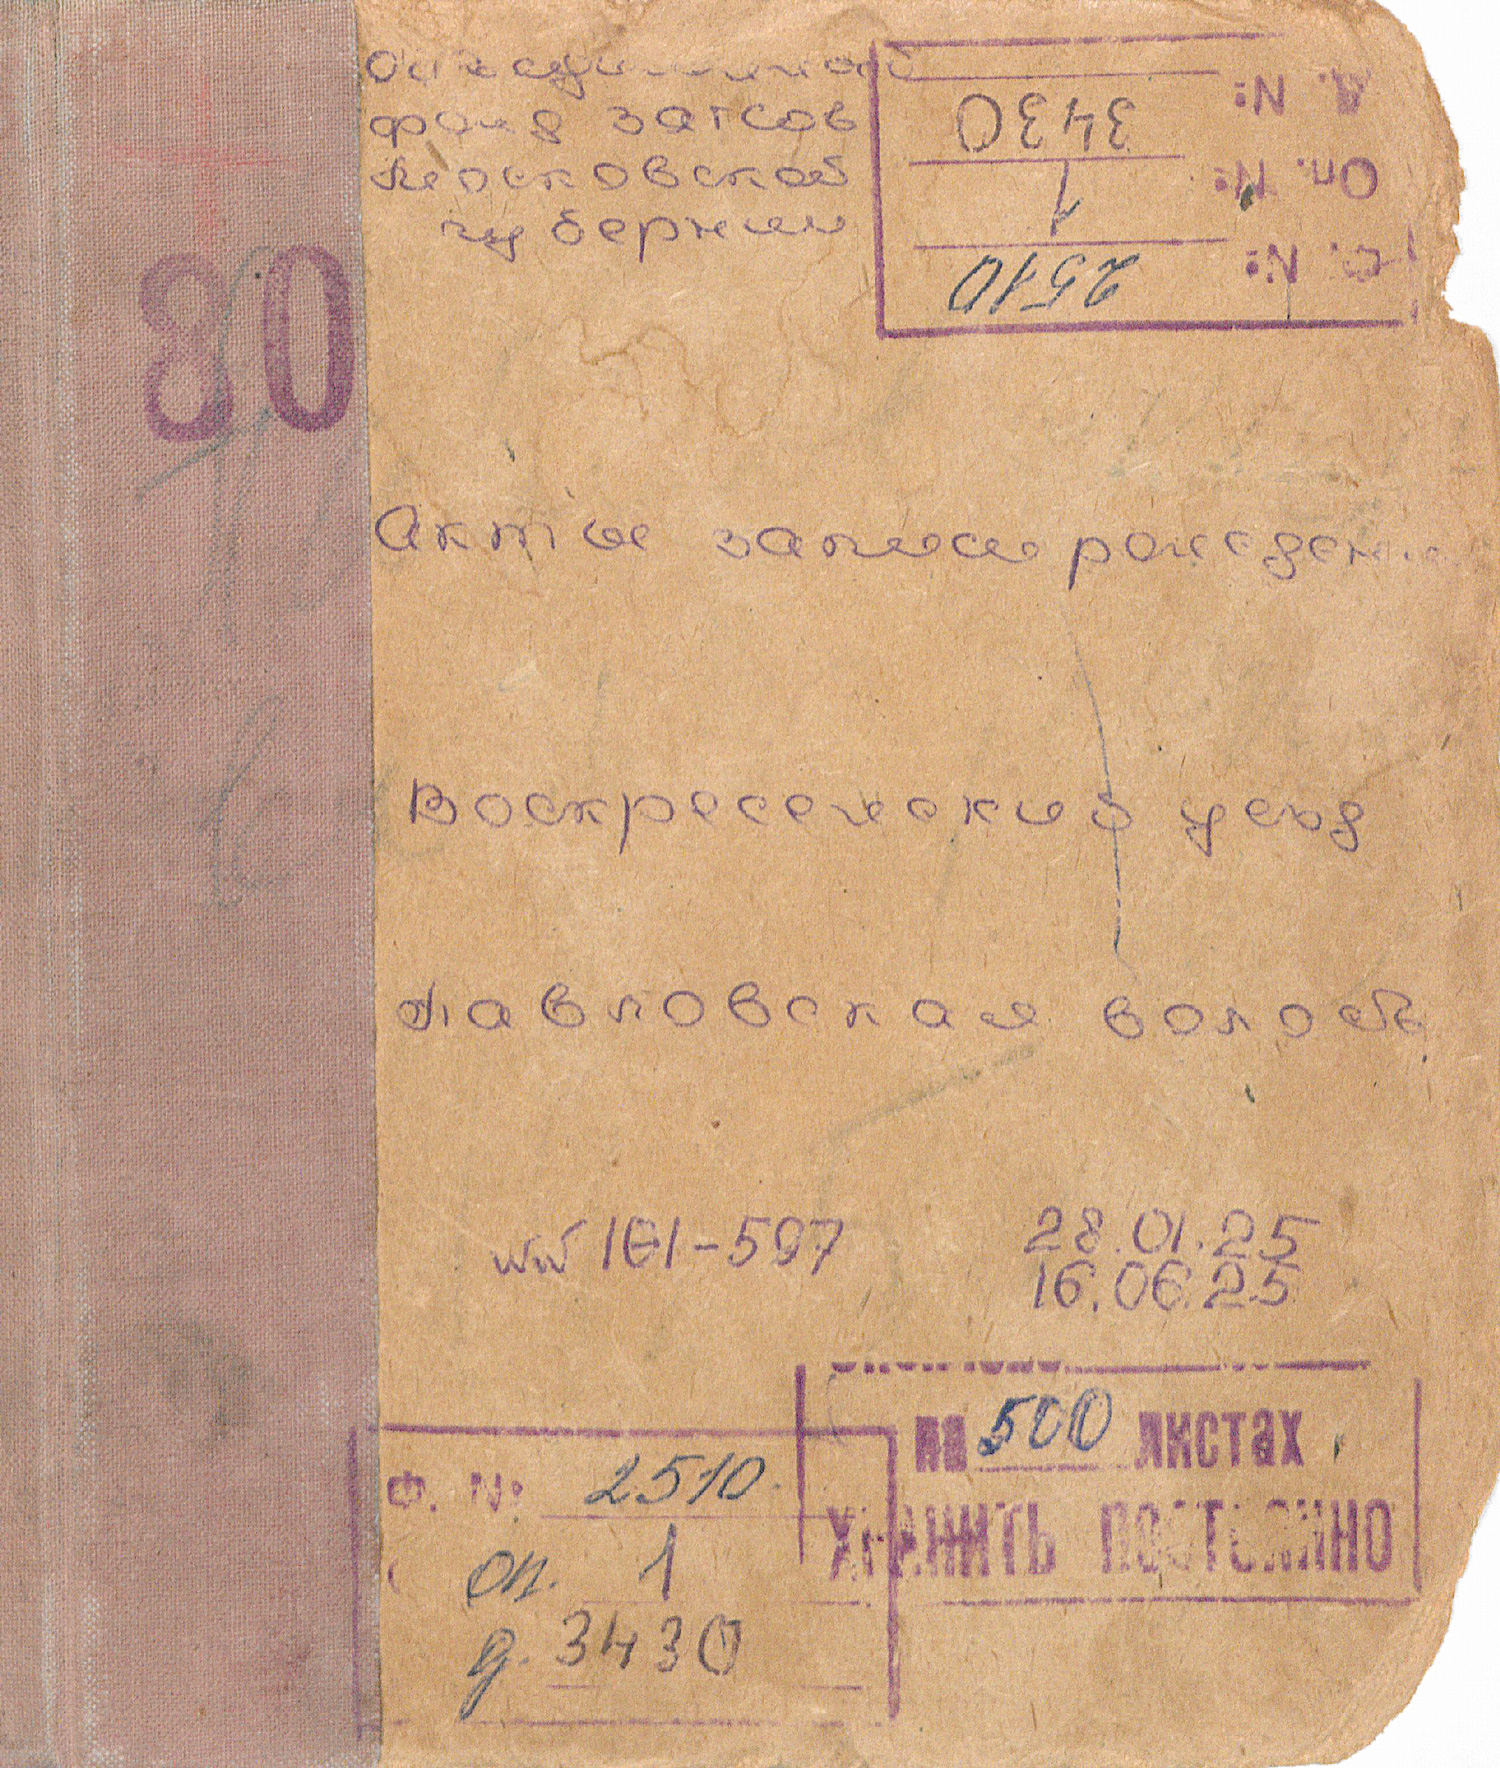 Объединенный
фонд загсов
Московской
губернии
Ф. №: 2510
Оп. №: 1
Д. №: 3430
80
Акты записи рождени
Воскресенский уезд
Павловская волость
№№ 161-597
28.01.25
16.06.25
на 500 листах
ХРАНИТЬ ПОСТОЯННО
Ф. №: 2510.
оп. 1
д. 3430